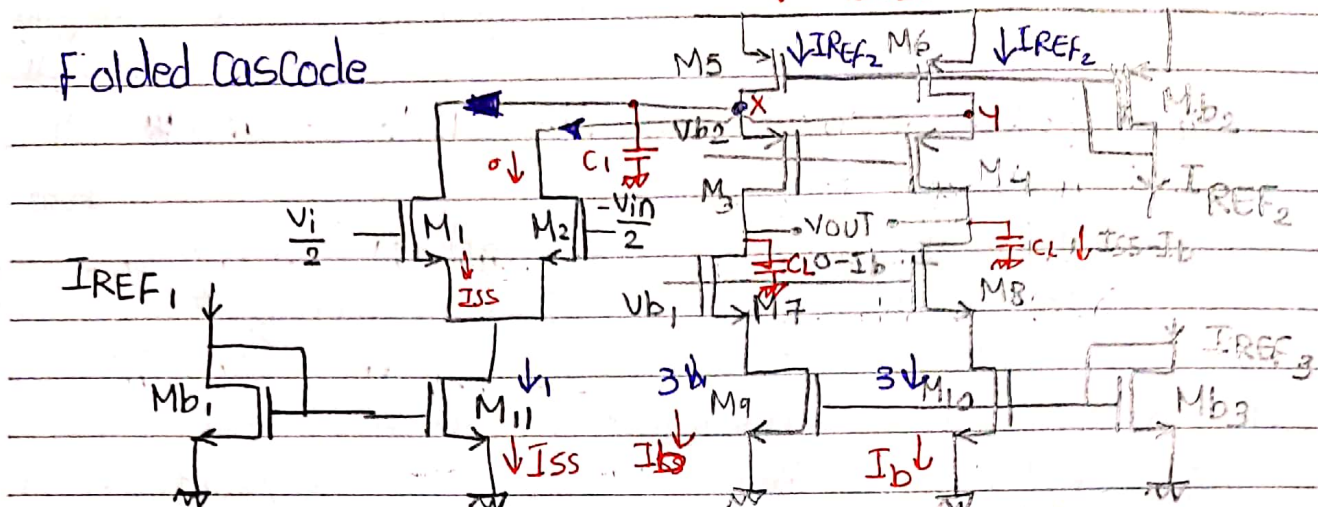 Folded Cascode
M5
↓IREF2
M6
↓IREF2
Mb2
X
Y
Vb2
0↓
C1
M3
M4
IREF2
Vi/2
M1
M2
-Vin/2
VOUT
CL
0-Ib
CL
↓ISS-Ib
ISS
IREF1
Vb1
M7
M8
IREF3
Mb1
↓1
M11
3↓
M9
3↓
M10
Mb3
↓ISS
Ib↓